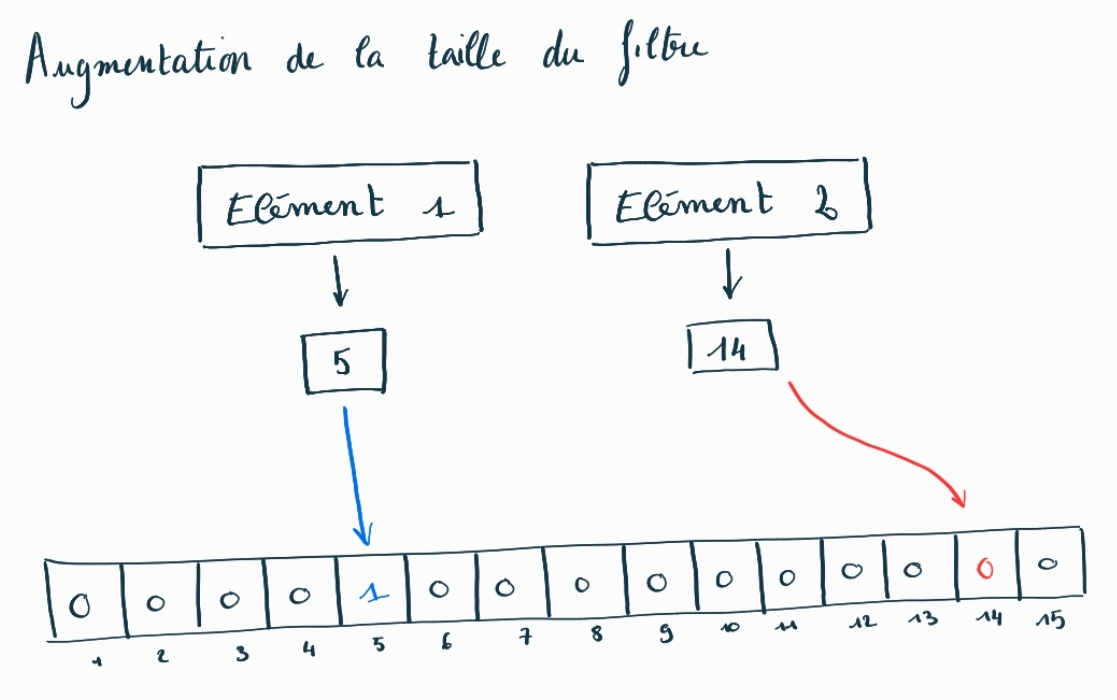 Augmentation de la taille du filtre
Elément 1 Elément 2
5 14
0 0 0 0 1 0 0 0 0 0 0 0 0 0 0
1 2 3 4 5 6 7 8 9 10 11 12 13 14 15